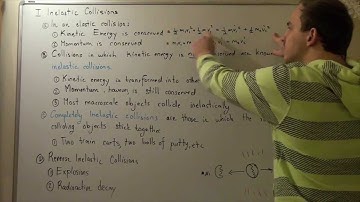 I Inelastic Collisions
① In an elastic collision:
① Kinetic Energy is conserved
② Momentum is conserved
② Collisions in which kinetic energy is not conserved are known
inelastic collisions
① Kinetic energy is transformed into other
② Momentum, however, is still conserved
③ Most macroscale objects collide inelastically
③ Completely inelastic collisions are those in which the
colliding objects stick together
① Two train carts, two balls of putty, etc.
④ Reverse Inelastic Collisions
① Explosions
② Radioactive decay